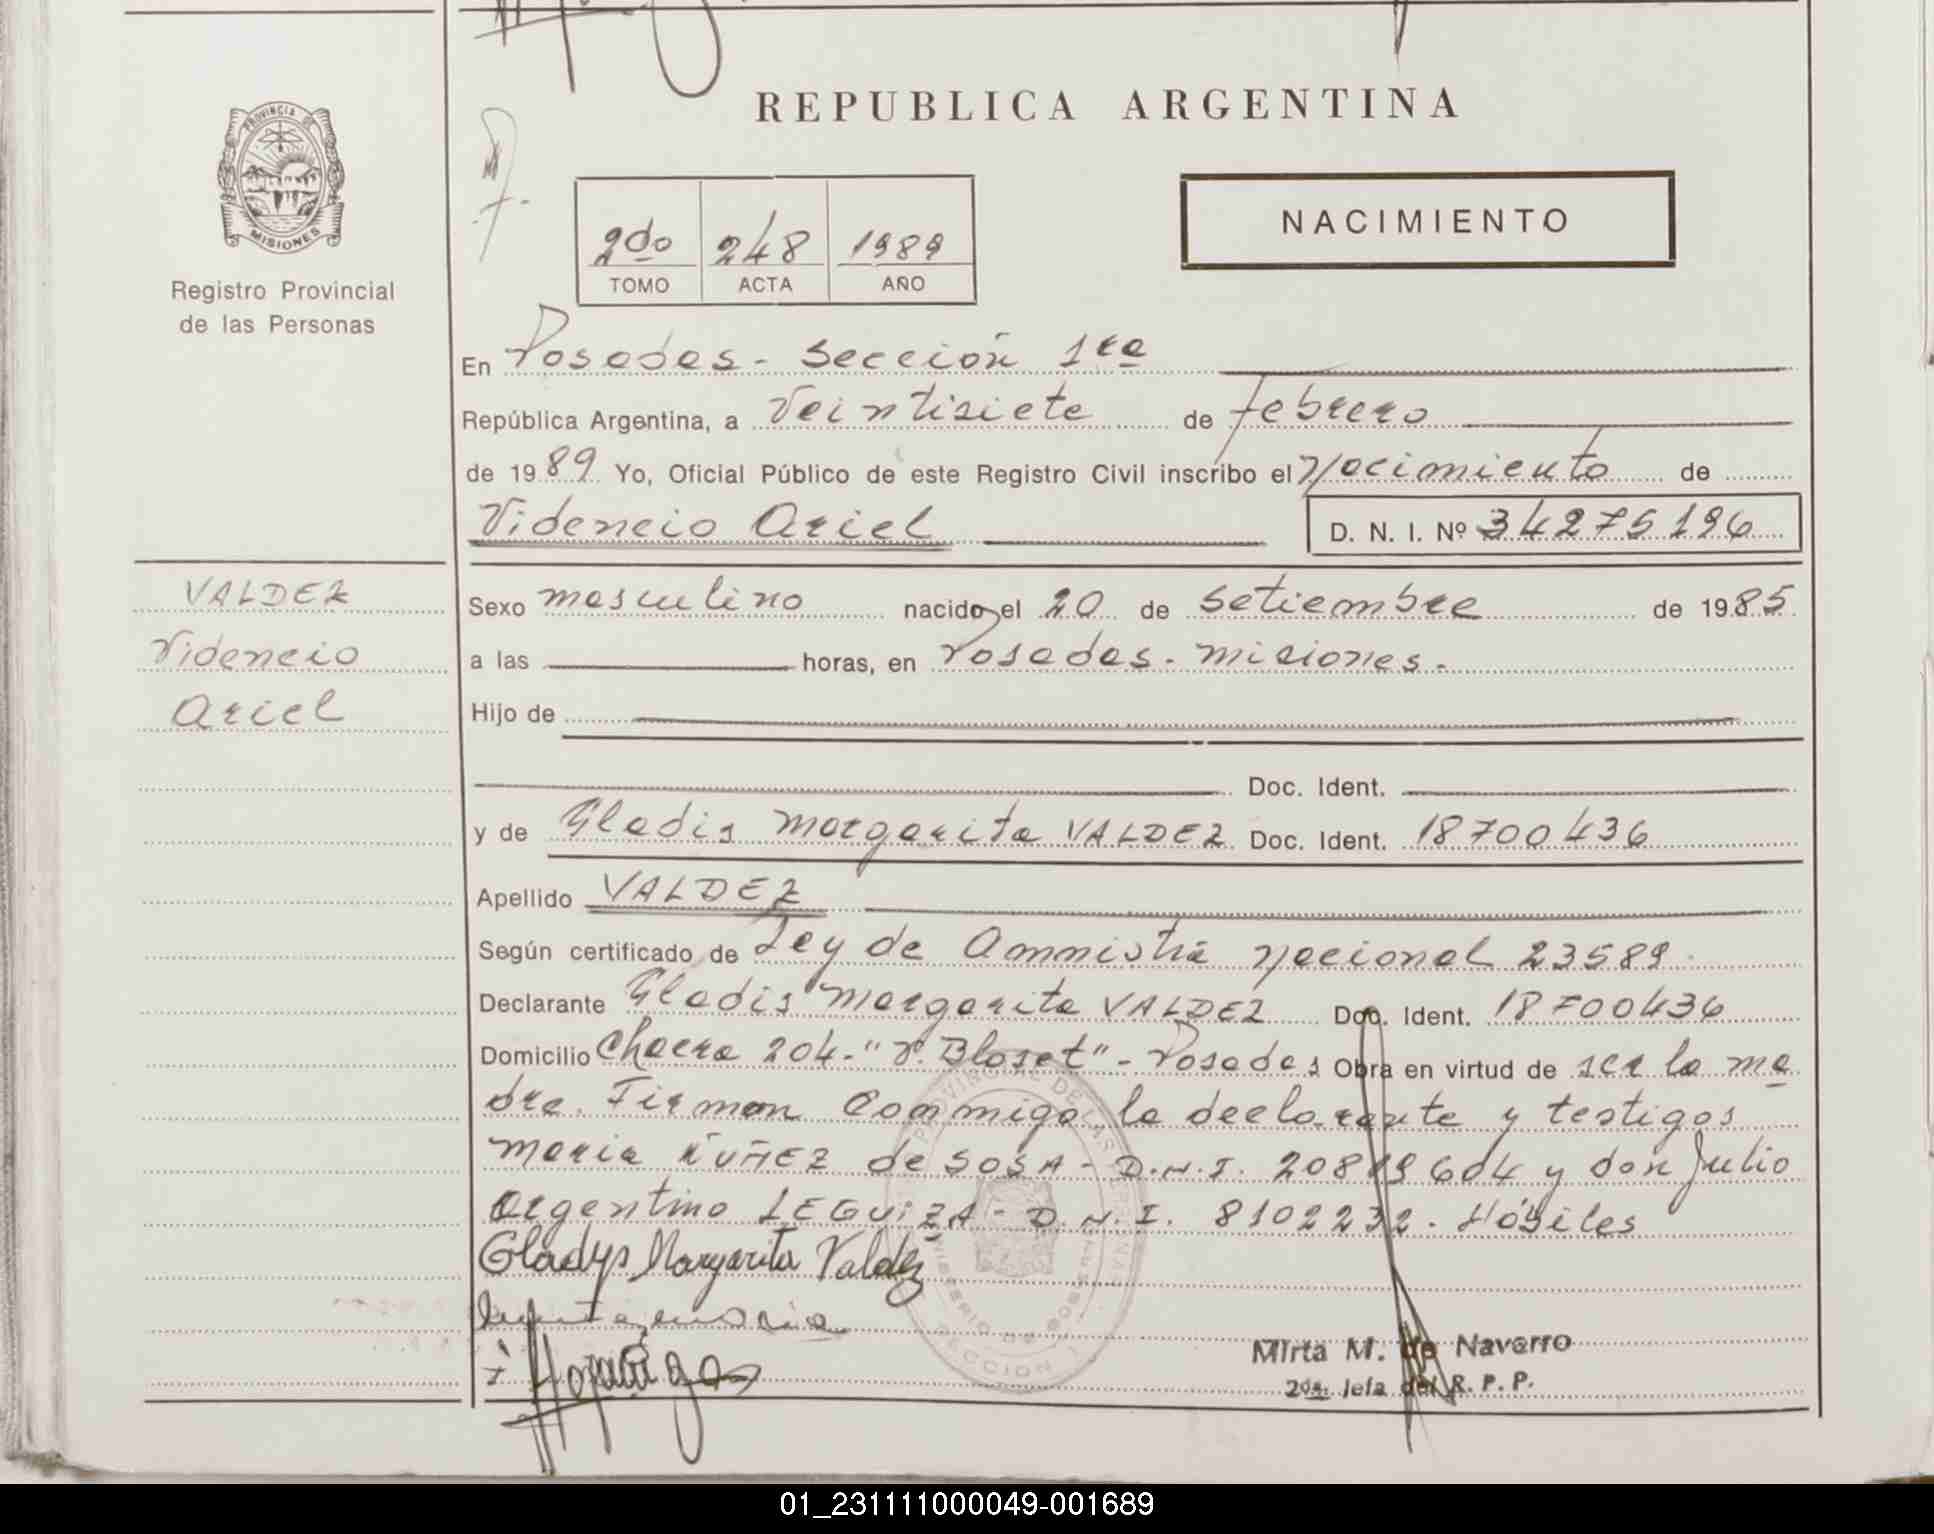 PROVINCIA DE
MISIONES
Registro Provincial
de las Personas
REPUBLICA ARGENTINA
2do 248 1989
TOMO ACTA AÑO
NACIMIENTO
En Posadas - Sección 1ra
República Argentina, a Veintisiete de febrero
de 1989 Yo, Oficial Público de este Registro Civil inscribo el Nacimiento de
Videncio Ariel D. N. I. Nº 34275196
VALDEZ
Videncio
Ariel
Sexo masculino nacido el 20 de Setiembre de 1985
a las horas, en Posadas - Misiones.
Hijo de
Doc. Ident.
y de Gladis Margarita VALDEZ Doc. Ident. 18700436
Apellido VALDEZ
Según certificado de Ley de Ammistia Nacional 23589
Declarante Gladis Margarita VALDEZ Doc. Ident. 18700436
Domicilio Chacra 204 - - Posadas Obra en virtud de ser la ma
dre. Firman Conmigo la declarante y testigos
Maria NUÑEZ de SOSA - D.N.I. 20819604 y don Julio
Argentino LEGUIZA - D.N.I. 8102232. Hábiles
Gladys Margarita Valdez
Mirta M. de Navarro
2da. Jefa del R. P. P.
01_231111000049-001689